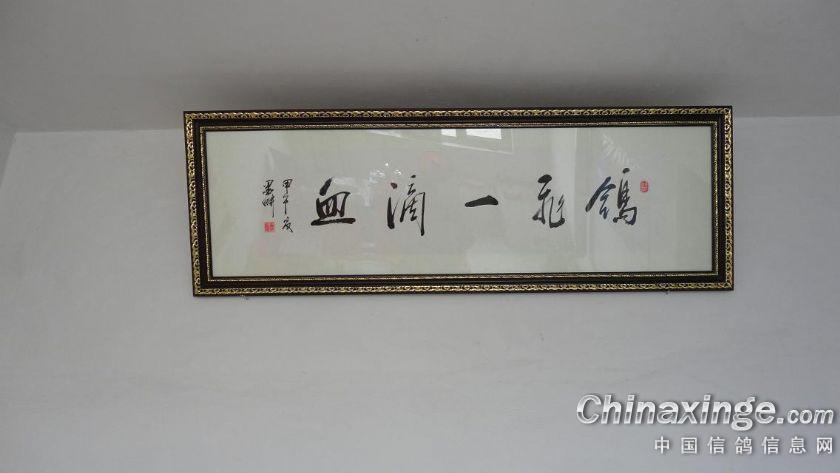 鸽飛一滴血
甲午夏
Chinaxinge.com
中国信鸽信息网